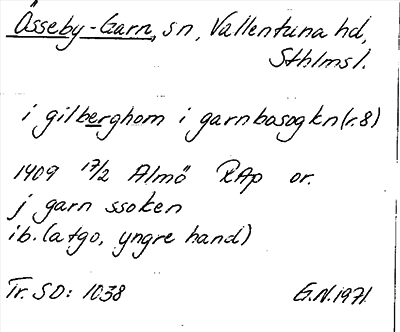 Össeby-Garn, sn, Vallentuna hd,
Sthlmsl.
i gilberghom i garnbosogkn (r.8)
1409 17/2 Almö RAp or.
j garn ssoken
ib. (atgo, yngre hand)
Tr. SD: 1038
G.N. 1971